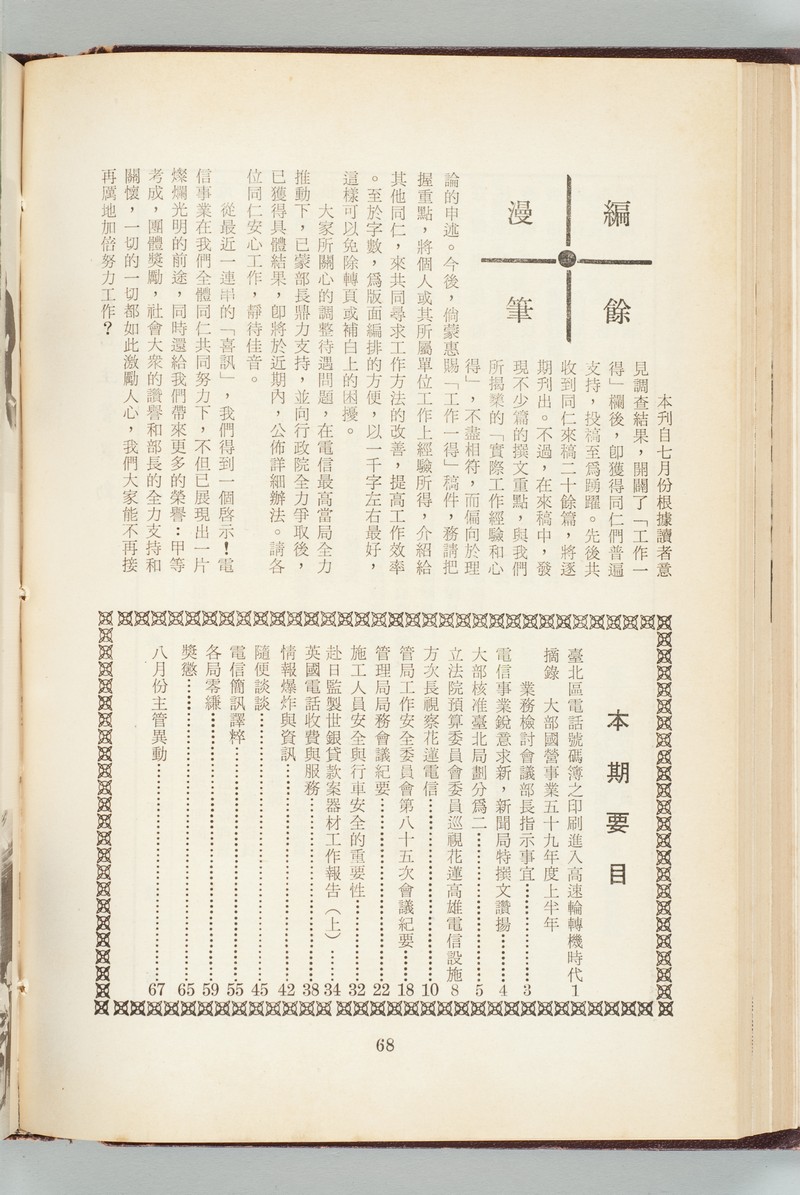 編餘
漫筆
本刊自七月份根據讀者意
見調查結果，開闢了「工作一
得」欄後，卽獲得同仁們普遍
支持，投稿至爲踴躍。先後共
收到同仁來稿二十餘篇，將逐
期刊出。不過，在來稿中，發
現不少篇的撰文重點，與我們
所揭櫫的「實際工作經驗和心
得」，不盡相符，而偏向於理
論的申述。今後，倘蒙惠賜「工作一得」稿件，務請把
握重點，將個人或其所屬單位工作上經驗所得，介紹給
其他同仁，來共同尋求工作方法的改善，提高工作效率
。至於字數，爲版面編排的方便，以一千字左右最好，
這樣可以免除轉頁或補白上的困擾。
大家所關心的調整待遇問題，在電信最高當局全力
推動下，已蒙部長鼎力支持，並向行政院全力爭取後，
已獲得具體結果，卽將於近期內，公佈詳細辦法。請各
位同仁安心工作，靜待佳音。
從最近一連串的「喜訊」，我們得到一個啓示！電
信事業在我們全體同仁共同努力下，不但已展現出一片
燦爛光明的前途，同時還給我們帶來更多的榮譽：甲等
考成，團體獎勵，社會大衆的讚譽和部長的全力支持和
關懷，一切的一切都如此激勵人心，我們大家能不再接
再厲地加倍努力工作？
本期要目
臺北區電話號碼簿之印刷進入高速輪轉機時代1
摘錄　大部國營事業五十九年度上半年
業務檢討會議部長指示事宜……………3
電信事業銳意求新，新聞局特撰文讚揚………4
大部核准臺北局劃分爲二……………………5
立法院預算委員會委員巡視花蓮高雄電信設施8
方次長視察花蓮電信…………………………10
管局工作安全委員會第八十五次會議紀要……18
管理局局務會議紀要…………………………22
施工人員安全與行車安全的重要性…………32
赴日監製世銀貸款案器材工作報告（上）……34
英國電話收費與服務…………………………38
情報爆炸與資訊………………………………42
隨便談談………………………………………45
電信簡訊譯粹…………………………………55
各局零縑………………………………………59
獎懲……………………………………………65
八月份主管異動………………………………67
68